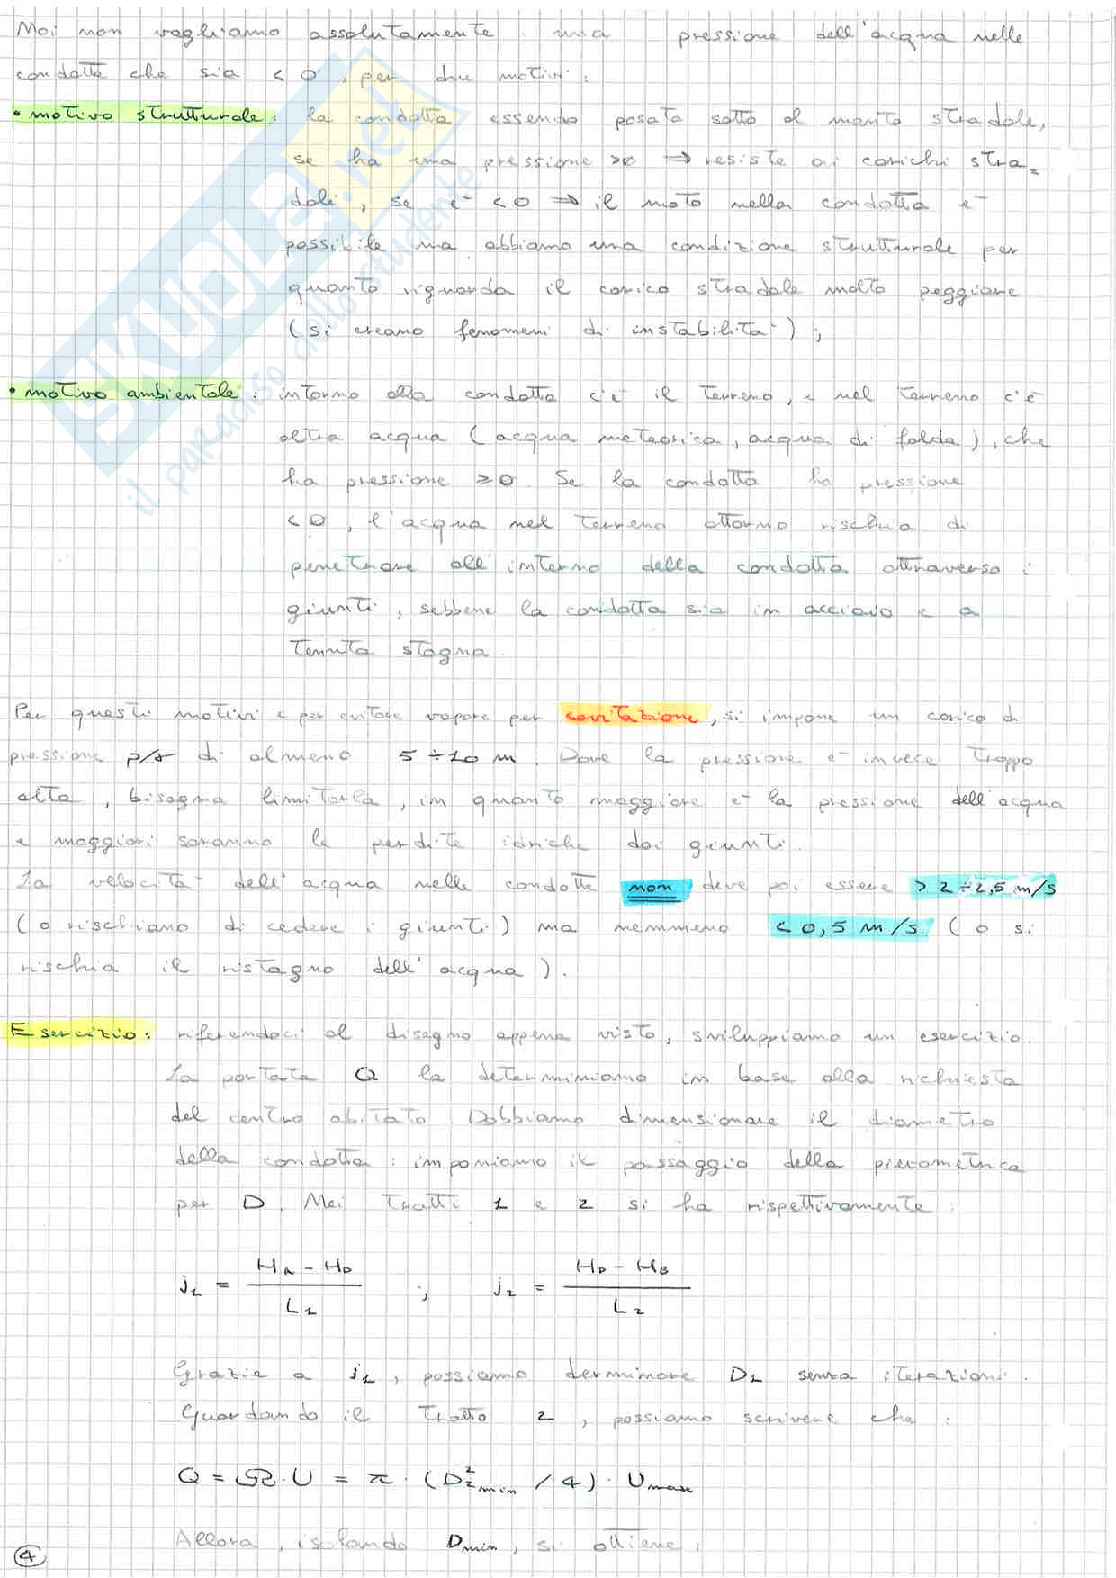 Noi non vogliamo assolutamente una pressione dell'acqua nelle
condotte che sia < 0, per due motivi:
• motivo strutturale: la condotta essendo posata sotto al manto stradale,
se ha una pressione >0 ⇒ resiste ai carichi stra=
dali, se è <0 ⇒ il moto nella condotta è
possibile ma abbiamo una condizione strutturale per
quanto riguarda il carico stradale molto peggiore
(si creano fenomeni di instabilità);
• motivo ambientale: intorno alla condotta c'è il terreno, e nel terreno c'è
altra acqua (acqua meteorica, acqua di falda), che
ha pressione ≥0. Se la condotta ha pressione
<0, l'acqua nel terreno attorno rischia di
penetrare all'interno della condotta attraverso i
giunti, sebbene la condotta sia in acciaio e a
tenuta stagna.
Per questi motivi e per evitare vapore per cavitazione, si impone un carico di
pressione p/γ di almeno 5÷10 m. Dove la pressione è invece troppo
alta, bisogna limitarla, in quanto maggiore è la pressione dell'acqua
e maggiori saranno le perdite idriche dai giunti.
La velocità dell'acqua nelle condotte non deve poi essere > 2÷2,5 m/s
(o rischiano di cedere i giunti) ma nemmeno < 0,5 m/s (o si
rischia il ristagno dell'acqua).
Esercizio: riferendoci al disegno appena visto, sviluppiamo un esercizio.
La portata Q la determiniamo in base alla richiesta
del centro abitato. Dobbiamo dimensionare il diametro
della condotta: imponiamo il passaggio della piezometrica
per D. Nei tratti 1 e 2 si ha rispettivamente:
j₁ = (H_A - H_D) / L₁ ; j₂ = (H_D - H_B) / L₂
Grazie a j₁, possiamo derminare D₁ senza iterazioni.
Guardando il tratto 2, possiamo scrivere che:
Q = Ω·U = π·(D₂²min / 4)·Umax
Allora, isolando Dmin, si ottiene:
4
SKUOLA.net
il paradiso dello studente